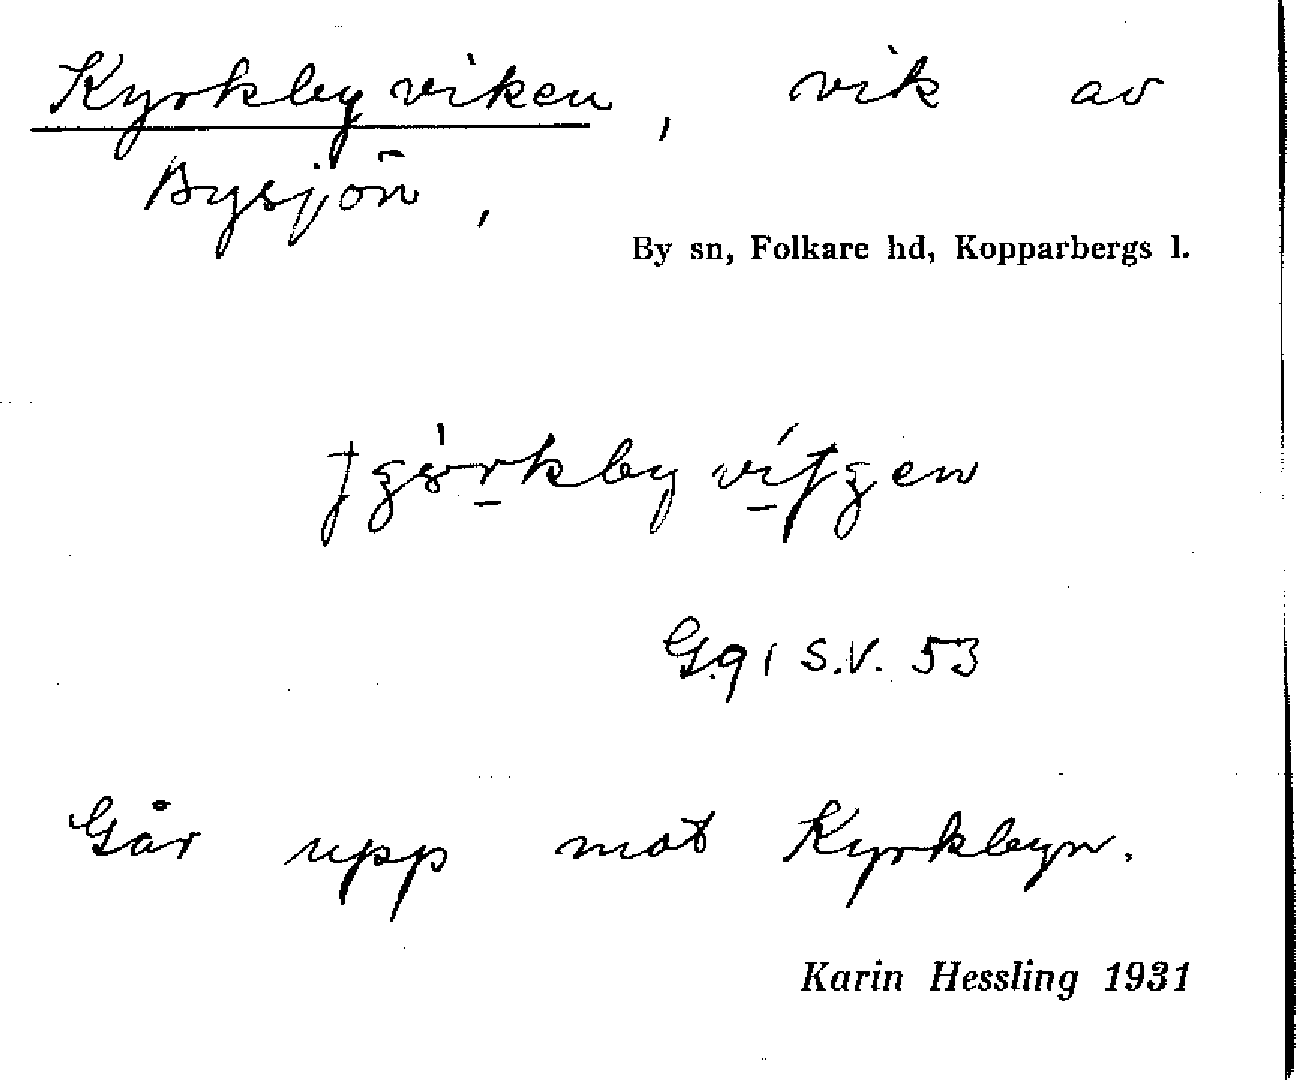 Kyrkbyviken, vik av
Bysjön,
By sn, Folkare hd, Kopparbergs l.
G.91 S.V. 53
Går upp mot Kyrkbyn.
Karin Hessling 1931